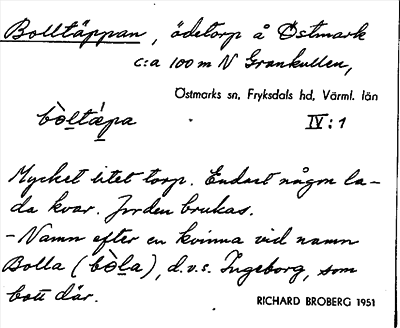 Bolltäppan, ödetorp å Östmark
c:a 100 m N Grankullen,
Östmarks sn, Fryksdals hd, Värml. län
bòltǽpa
IV:1
Mycket litet torp. Endast någon la-
da kvar. Jorden brukas.
- Namn efter en kvinna vid namn
Bolla (bòla), d.v.s. Ingeborg, som
bott där.
RICHARD BROBERG 1951